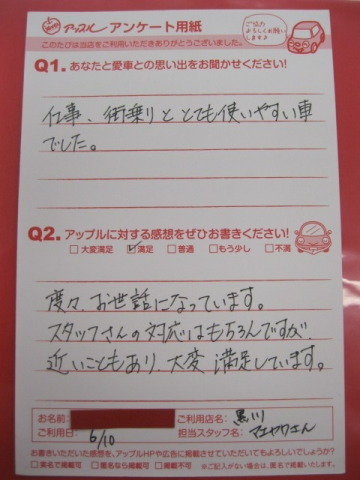 アップル アンケート用紙
ご協力
よろしくお願い
します♪
このたびは当店をご利用いただきありがとうございました。
Q1. あなたと愛車との思い出をお聞かせください!
仕事、街乗りととても使いやすい車
でした。
Q2. アップルに対する感想をぜひお書きください!
□大変満足 ☑満足 □普通 □もう少し □不満
度々、お世話になっています。
スタッフさんの対応はもちろんですが
近いこともあり、大変満足しています。
お名前:
ご利用店名: 黒川
ご利用日: 6/10
担当スタッフ名: マエヤマさん
お書きいただいた感想を、アップルHPや広告に掲載させていただいてもよろしいでしょうか?
□実名で掲載可 □匿名なら掲載可 □掲載不可 ※ご記入がない場合は、匿名で掲載いたします。